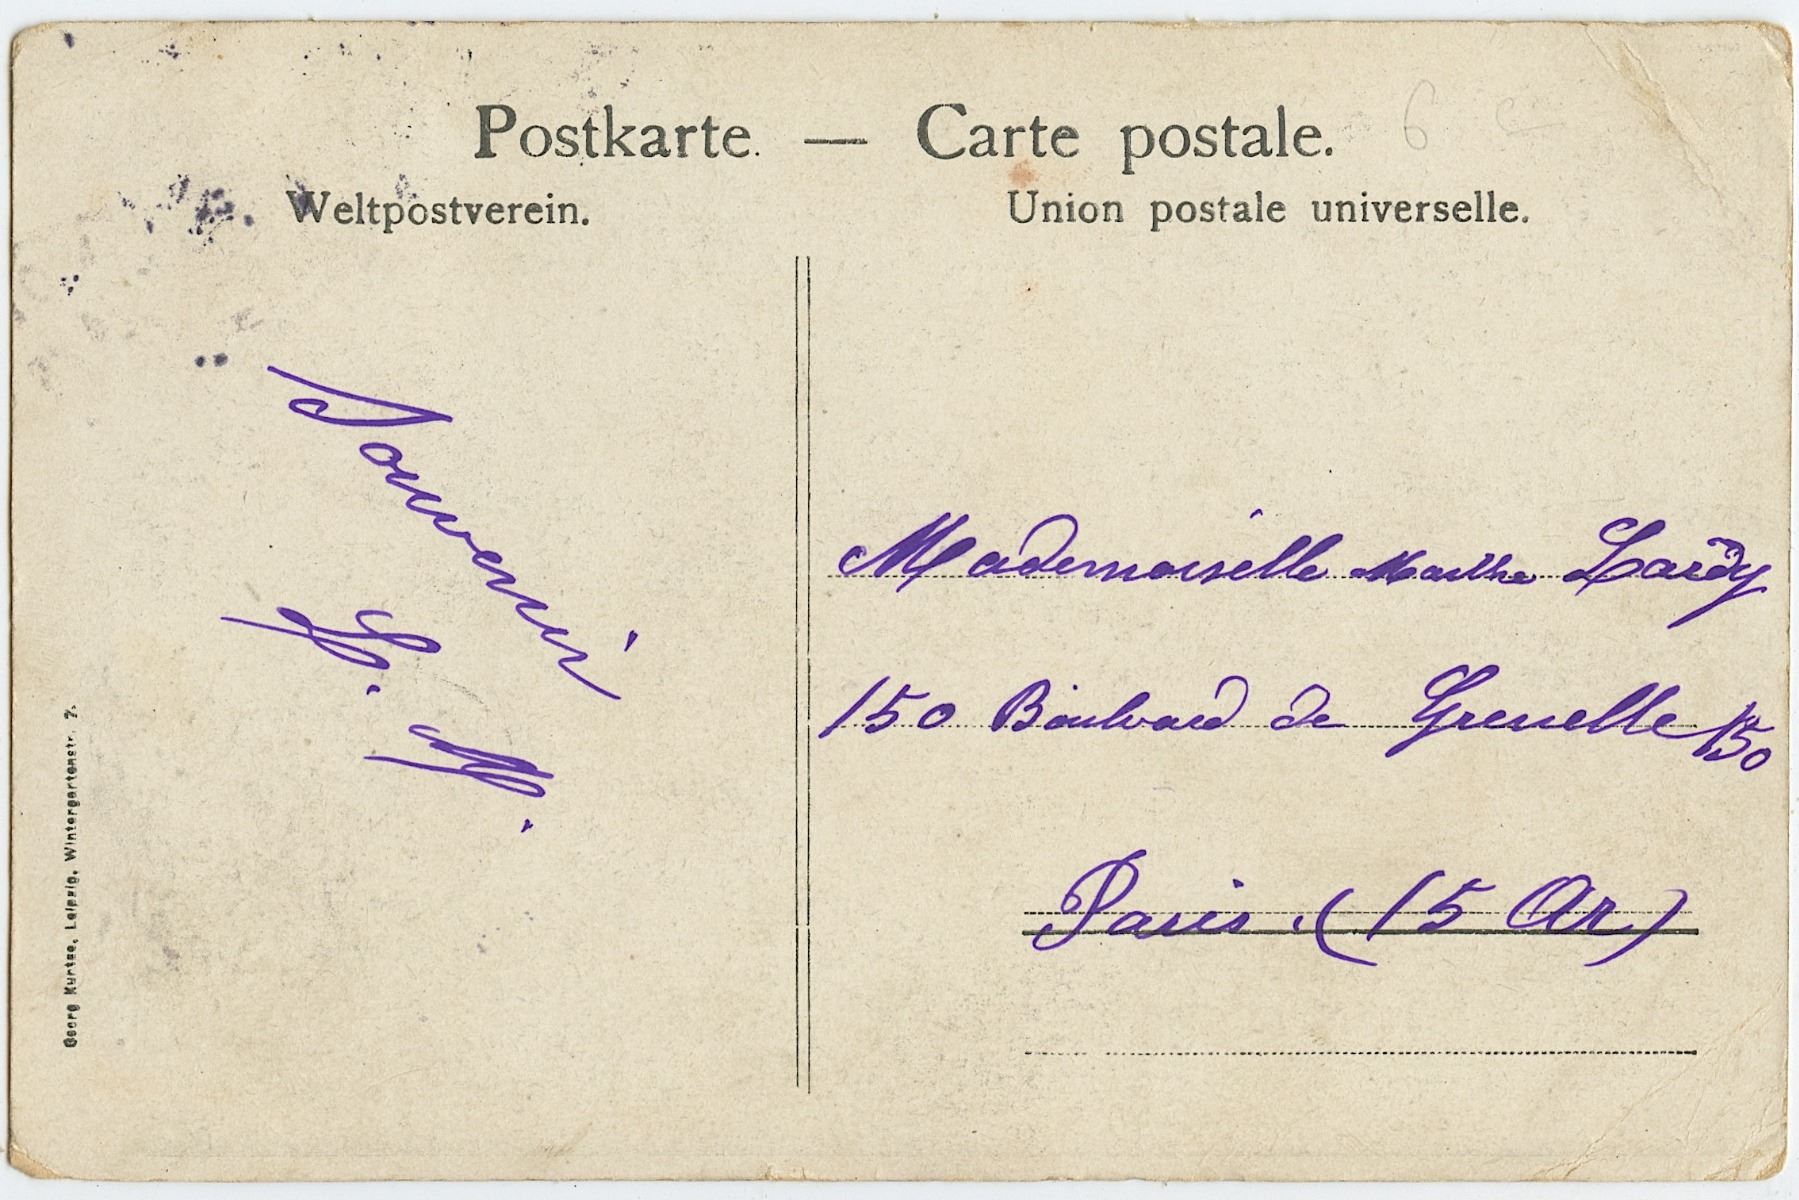 Postkarte. — Carte postale.
Weltpostverein.
Union postale universelle.
Souvenir
Mademoiselle Marthe Lardy
150 Boulvard de Grenelle 150
Paris. (15 Ar)
Georg Kurtze, Leipzig, Wintergartenstr. 7.